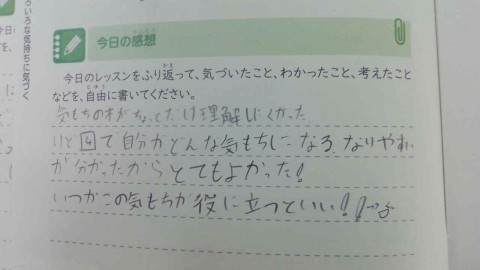 いろいろな気持ちに気づく
今日の感想
今日のレッスンをふり返って、気づいたこと、わかったこと、考えたこと
などを、自由に書いてください。
気もちの木が だけ理解しにくかった
けど 4 で自分がどんな気もちに なりやすい
が分かったから とてもよかった!
いつかこの気もちが 役に立つといい!